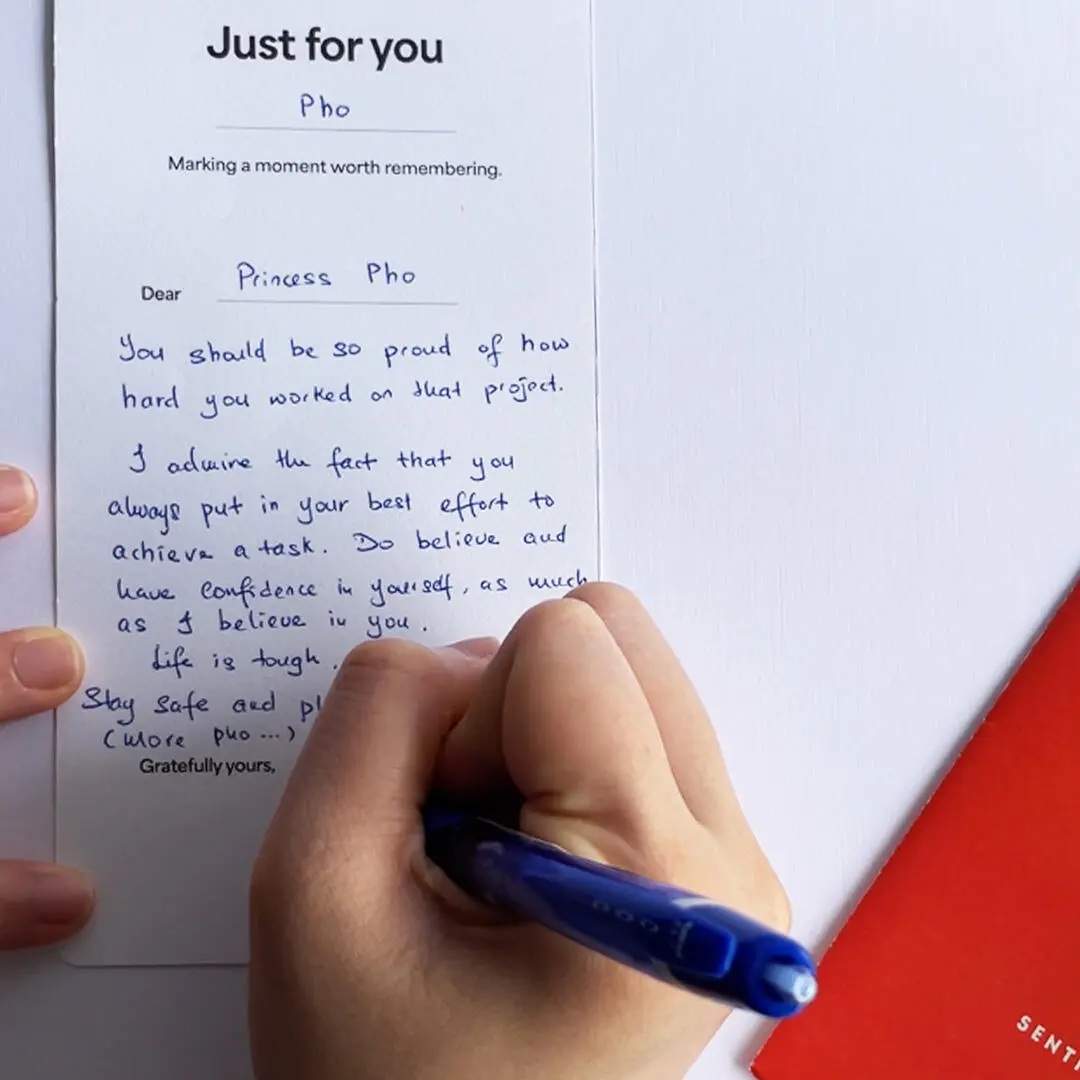 Just for you
Pho
Marking a moment worth remembering.
Dear Princess Pho
You should be so proud of how
hard you worked on that project.
I admire the fact that you
always put in your best effort to
achieve a task. Do believe and
have confidence in yourself, as much
as I believe in you.
Life is tough.
Stay safe and
(More pho ...)
Gratefully yours,